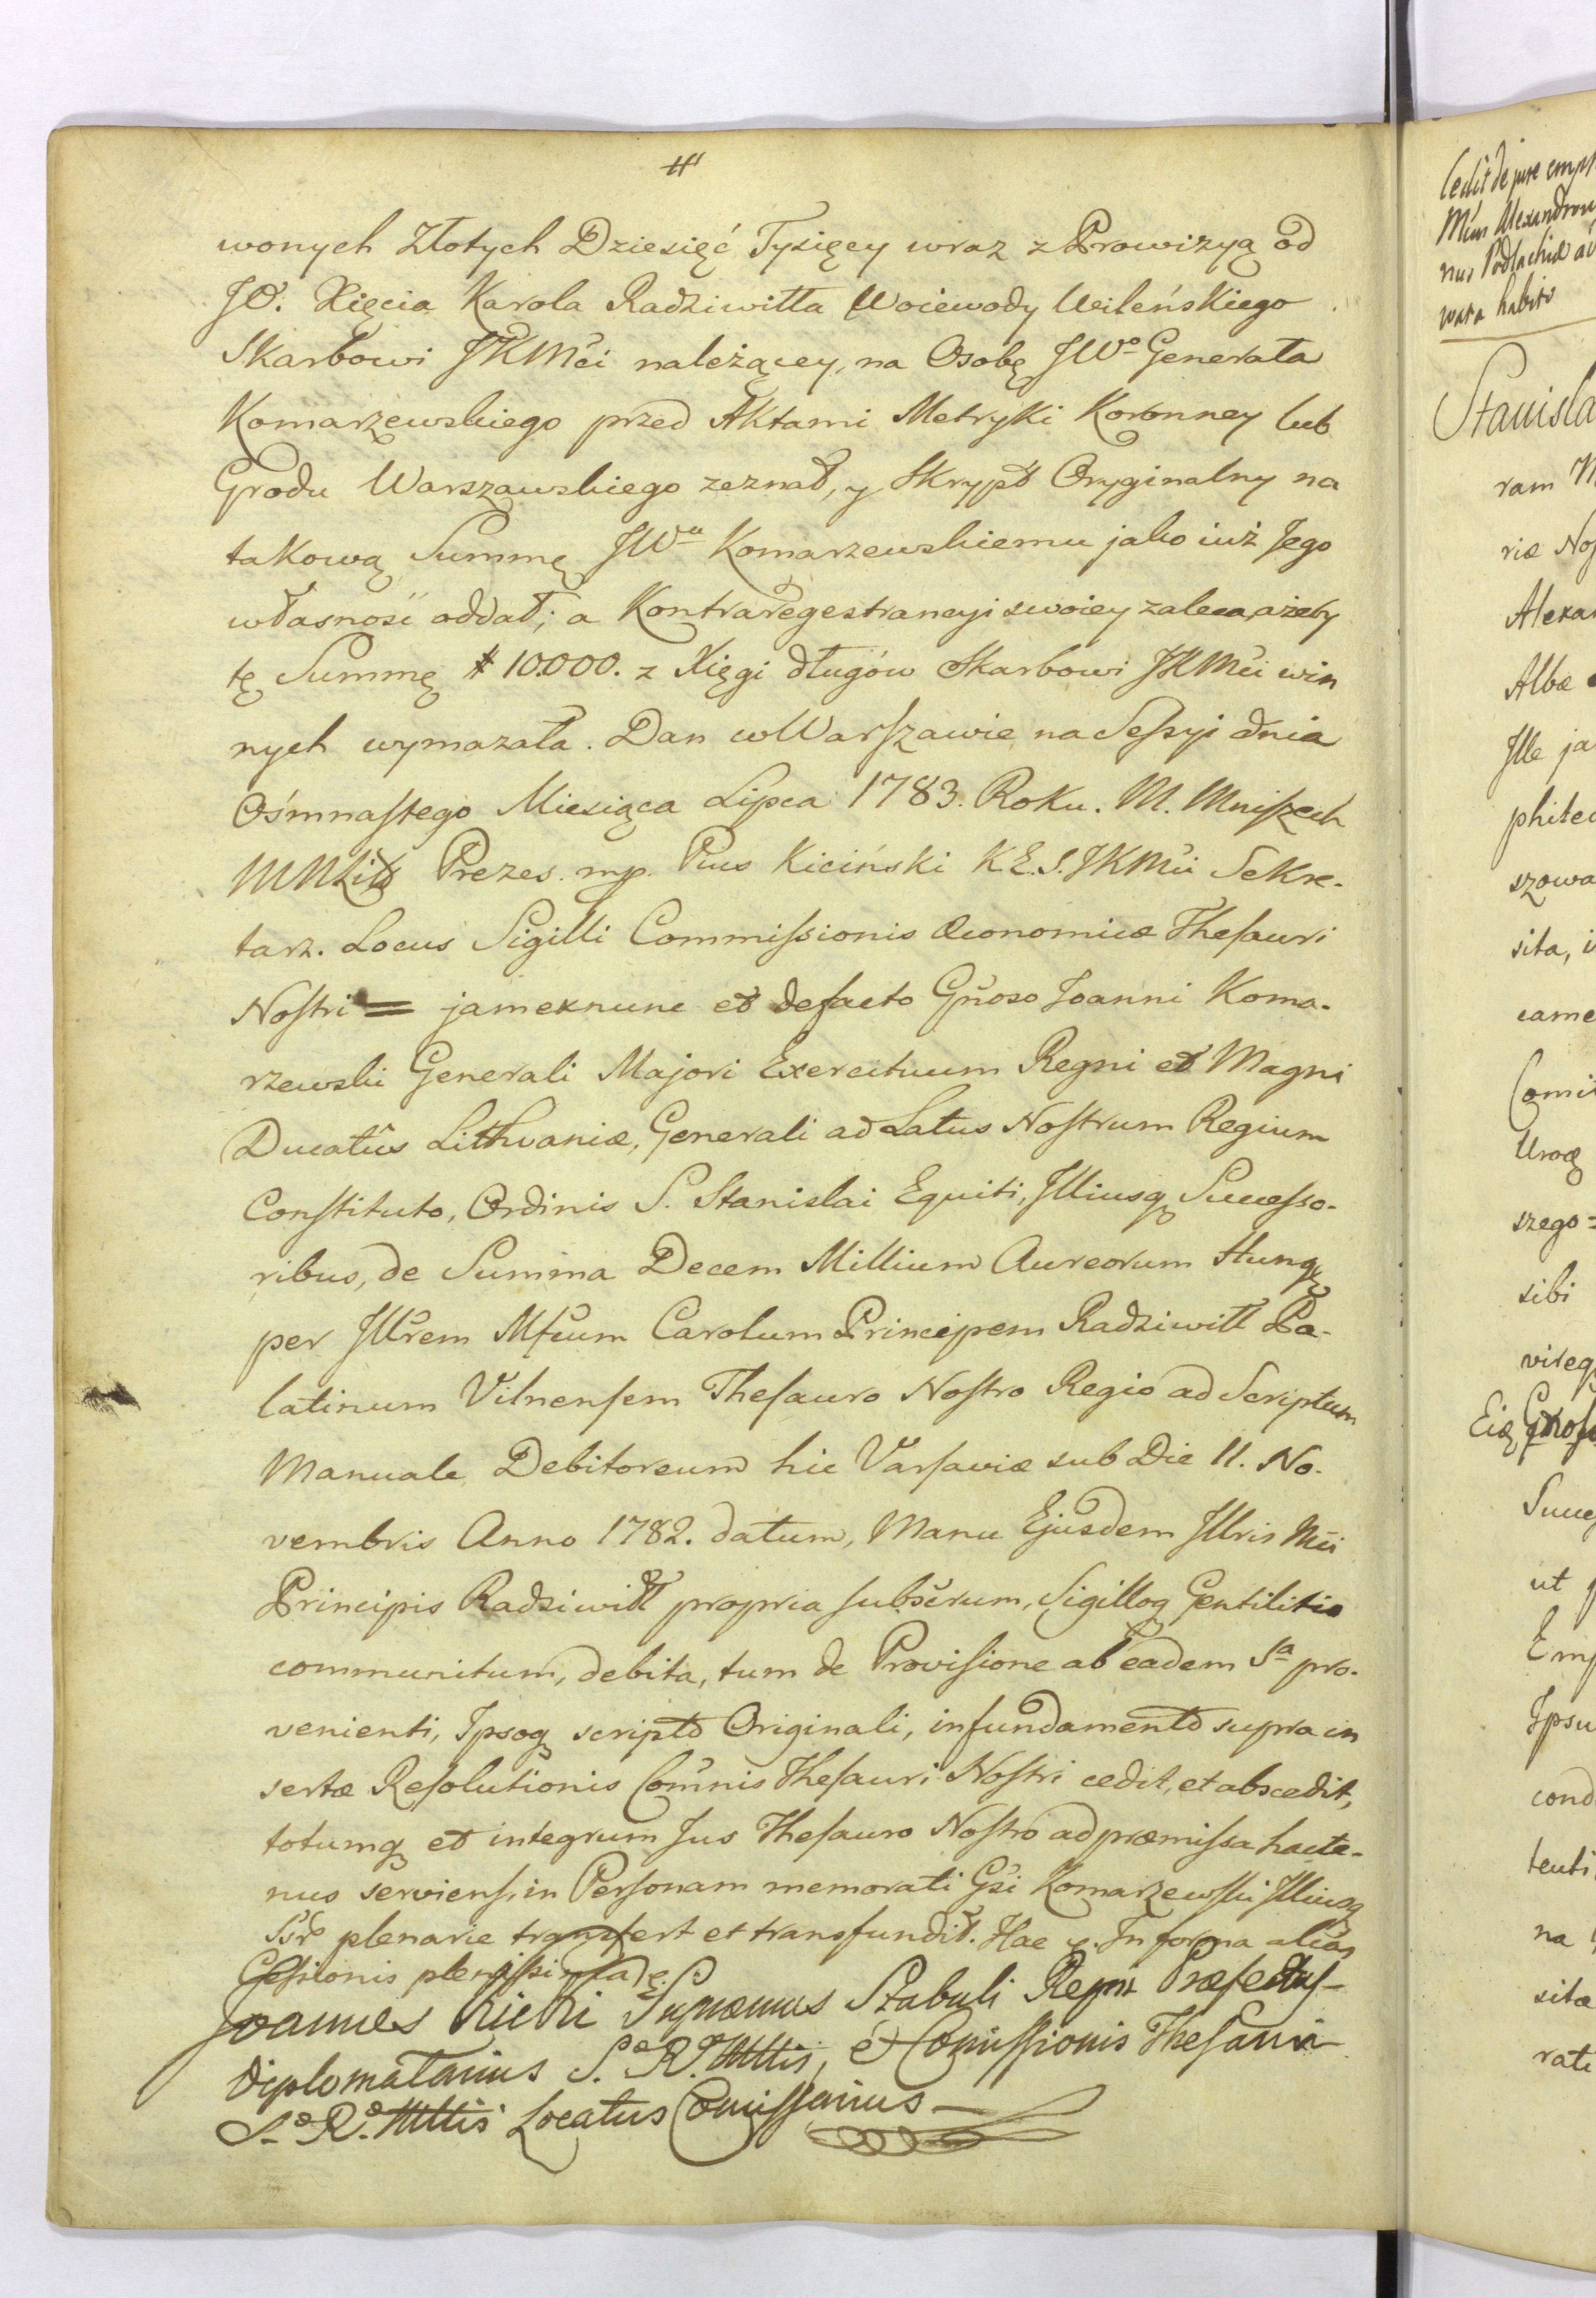 #
wonych Złotych Dziesięć Tysięcy wraz z Prowizyą od
JO. Xięcia Karola Radziwiłła Woiewody Wileńskiego
Skarbowi JKMci należącey, na Osobę JWo Generała
Komarzewskiego przed Aktami Metryki Koronney lub
Grodu Warszawskiego zeznał, y Skrypt Oryginalny na
takową Summę JWu Komarzewskiemu jako iuż Jego
własność oddał; a Kontraregestrancyi swoiey zaleca, ażeby
tę Summę # 10.000. z Xięgi długów Skarbowi JKMci win
nych wymazała. Dan w Warszawie na Sessyi dnia
Ośmnastego Miesiąca Lipca 1783. Roku. M. Mniszech
Prezes. mp. Pius Kiciński K.E.S.JKMci Sekre-
tarz. Locus Sigilli Commissionis Œconomicæ Thesauri
Nostri = jam ex nunc et de facto Gñoso Joanni Koma-
rzewski Generali Majori Exercituum Regni et Magni
Ducatûs Lithvaniæ, Generali ad Latus Nostrum Regium
Constituto, Ordinis S. Stanislai Equiti, Illiusq Successo-
ribus, de Summa Decem Millium Aureorum Hungq
per Illrem Mfcum Carolum Principem Radziwiłł Pa-
latinum Vilnensem Thesauro Nostro Regio ad Scriptum
Manuale Debitoreum hic Varsaviæ sub Die 11. No-
vembris Anno 1782. datum, Manu Ejusdem Illris Mci
Principis Radziwiłł propria subscrum, Sigilloq Gentilitio
communitum, debita, tum de Provisione ab eadem Sa pro-
venienti, Ipsoq scripto Originali, in fundamento supra in
sertæ Resolutionis Comnis Thesauri Nostri cedit, et abscedit,
totumq et integrum Jus Thesauro Nostro ad præmissa hacte-
nus serviens, in Personam memorati Gsi Komarzewski Illiusq
plenarie transfert et transfundit. Hac In forma alias
Cessionis plenissima
Joannes Kicki Supræmus Stabuli Regni Præfectus
Diplomatarius S. R. Mttis, et Comissionis Thesauri
S. R. Mttis Locatus Comissarius
Cedit de jure
Stanisla
ram
riæ
Albæ
Ille ja
szowa
sita,
came
szego
sibi
ut
Ipsu
cond
tenti
na
sitæ
rati